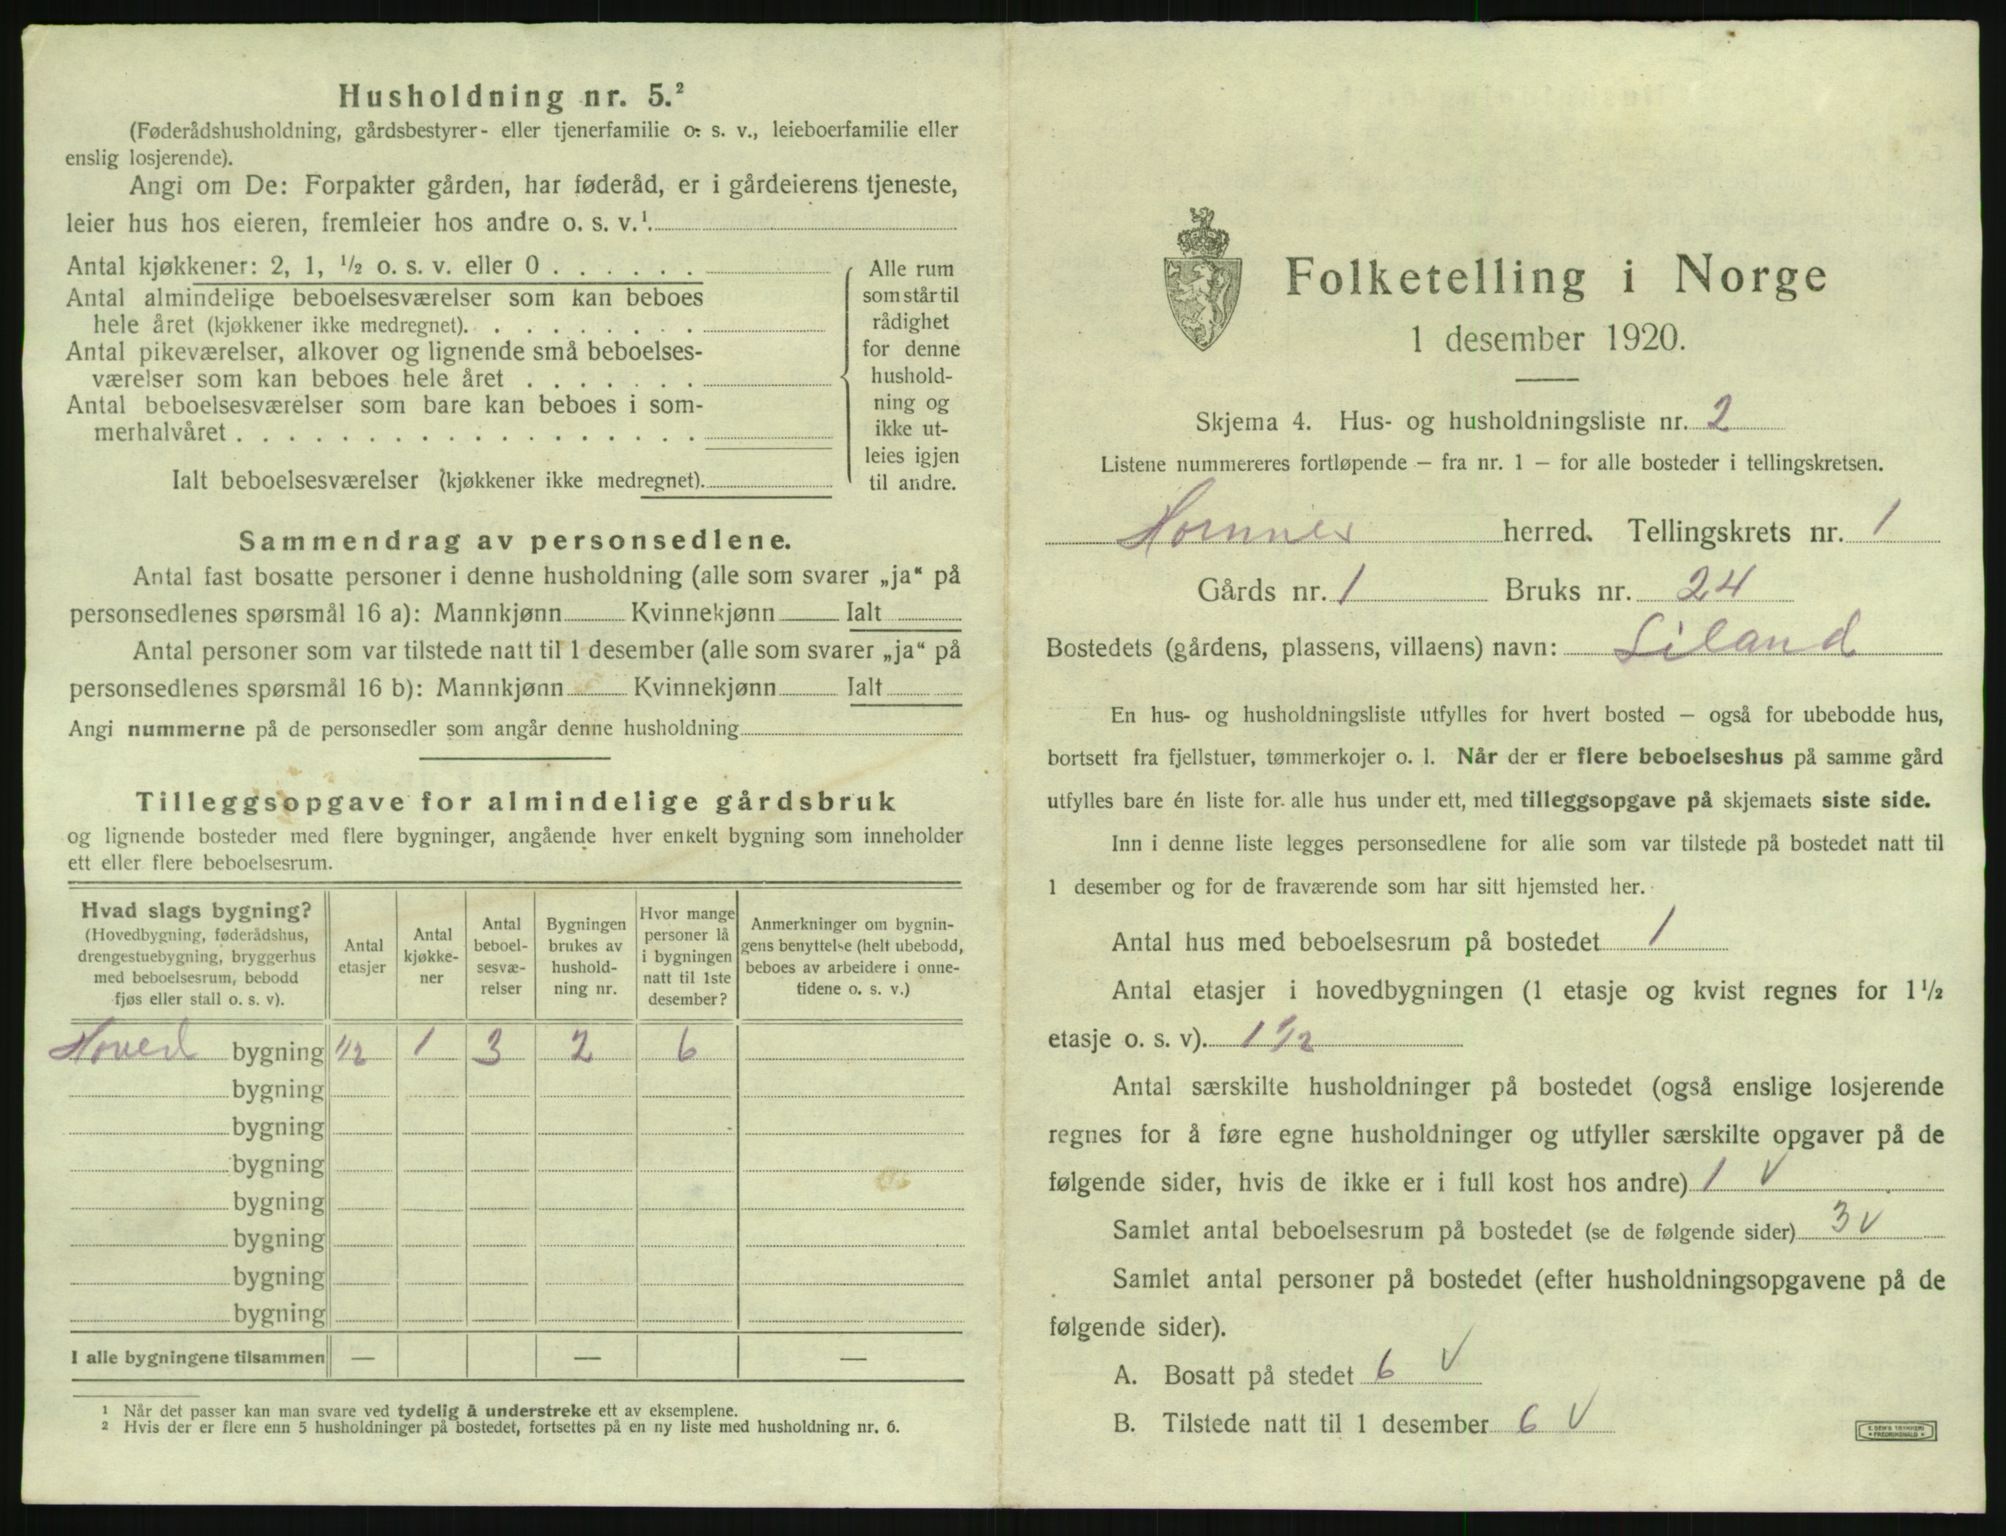 Husholdning nr. 5.²
(Føderådshusholdning, gårdsbestyrer- eller tjenerfamilie o. s. v., leieboerfamilie eller
enslig losjerende).
Angi om De: Forpakter gården, har føderåd, er i gårdeierens tjeneste,
leier hus hos eieren, fremleier hos andre o. s. v.¹.
Antal kjøkkener: 2, 1, ½ o. s. v. eller 0 . . . . . .
Antal almindelige beboelsesværelser som kan beboes
hele året (kjøkkener ikke medregnet). . . . . . . . .
Antal pikeværelser, alkover og lignende små beboelses-
værelser som kan beboes hele året . . . . . . .
Antal beboelsesværelser som bare kan beboes i som-
merhalvåret . . . . . . . . . . . . . . . . . .
Ialt beboelsesværelser (kjøkkener ikke medregnet).
Alle rum
som står til
rådighet
for denne
hushold-
ning og
ikke ut-
leies igjen
til andre.
Sammendrag av personsedlene.
Antal fast bosatte personer i denne husholdning (alle som svarer „ja“ på
personsedlenes spørsmål 16 a): Mannkjønn Kvinnekjønn Ialt
Antal personer som var tilstede natt til 1 desember (alle som svarer „ja“ på
personsedlenes spørsmål 16 b): Mannkjønn Kvinnekjønn Ialt
Angi nummerne på de personsedler som angår denne husholdning
Tilleggsopgave for almindelige gårdsbruk
og lignende bosteder med flere bygninger, angående hver enkelt bygning som inneholder
ett eller flere beboelsesrum.
Hvad slags bygning?
(Hovedbygning, føderådshus,
drengestuebygning, bryggerhus
med beboelsesrum, bebodd
fjøs eller stall o. s. v).
Antal
etasjer
Antal
kjøkke-
ner
Antal
beboel-
sesvæ-
relser
Bygningen
brukes av
hushold-
ning nr.
Hvor mange
personer lå
i bygningen
natt til 1ste
desember?
Anmerkninger om bygnin-
gens benyttelse (helt ubebodd,
beboes av arbeidere i onne-
tidene o. s. v.)
Hoved bygning ½ 1 3 2 6
bygning
bygning
bygning
bygning
bygning
bygning
bygning
I alle bygningene tilsammen — — —
¹ Når det passer kan man svare ved tydelig å understreke ett av eksemplene.
² Hvis der er flere enn 5 husholdninger på bostedet, fortsettes på en ny liste med husholdning nr. 6.
Folketelling i Norge
1 desember 1920.
Skjema 4. Hus- og husholdningsliste nr. 2
Listene nummereres fortløpende – fra nr. 1 – for alle bosteder i tellingskretsen.
Hornnes herred. Tellingskrets nr. 1
Gårds nr. 1 Bruks nr. 24
Bostedets (gårdens, plassens, villaens) navn: Liland
En hus- og husholdningsliste utfylles for hvert bosted – også for ubebodde hus,
bortsett fra fjellstuer, tømmerkojer o. l. Når der er flere beboelseshus på samme gård
utfylles bare én liste for alle hus under ett, med tilleggsopgave på skjemaets siste side.
Inn i denne liste legges personsedlene for alle som var tilstede på bostedet natt til
1 desember og for de fraværende som har sitt hjemsted her.
Antal hus med beboelsesrum på bostedet 1
Antal etasjer i hovedbygningen (1 etasje og kvist regnes for 1½
etasje o. s. v). 1½
Antal særskilte husholdninger på bostedet (også enslige losjerende
regnes for å føre egne husholdninger og utfyller særskilte opgaver på de
følgende sider, hvis de ikke er i full kost hos andre) 1 v
Samlet antal beboelsesrum på bostedet (se de følgende sider) 3 v
Samlet antal personer på bostedet (efter husholdningsopgavene på de
følgende sider).
A. Bosatt på stedet 6 v
B. Tilstede natt til 1 desember 6 v